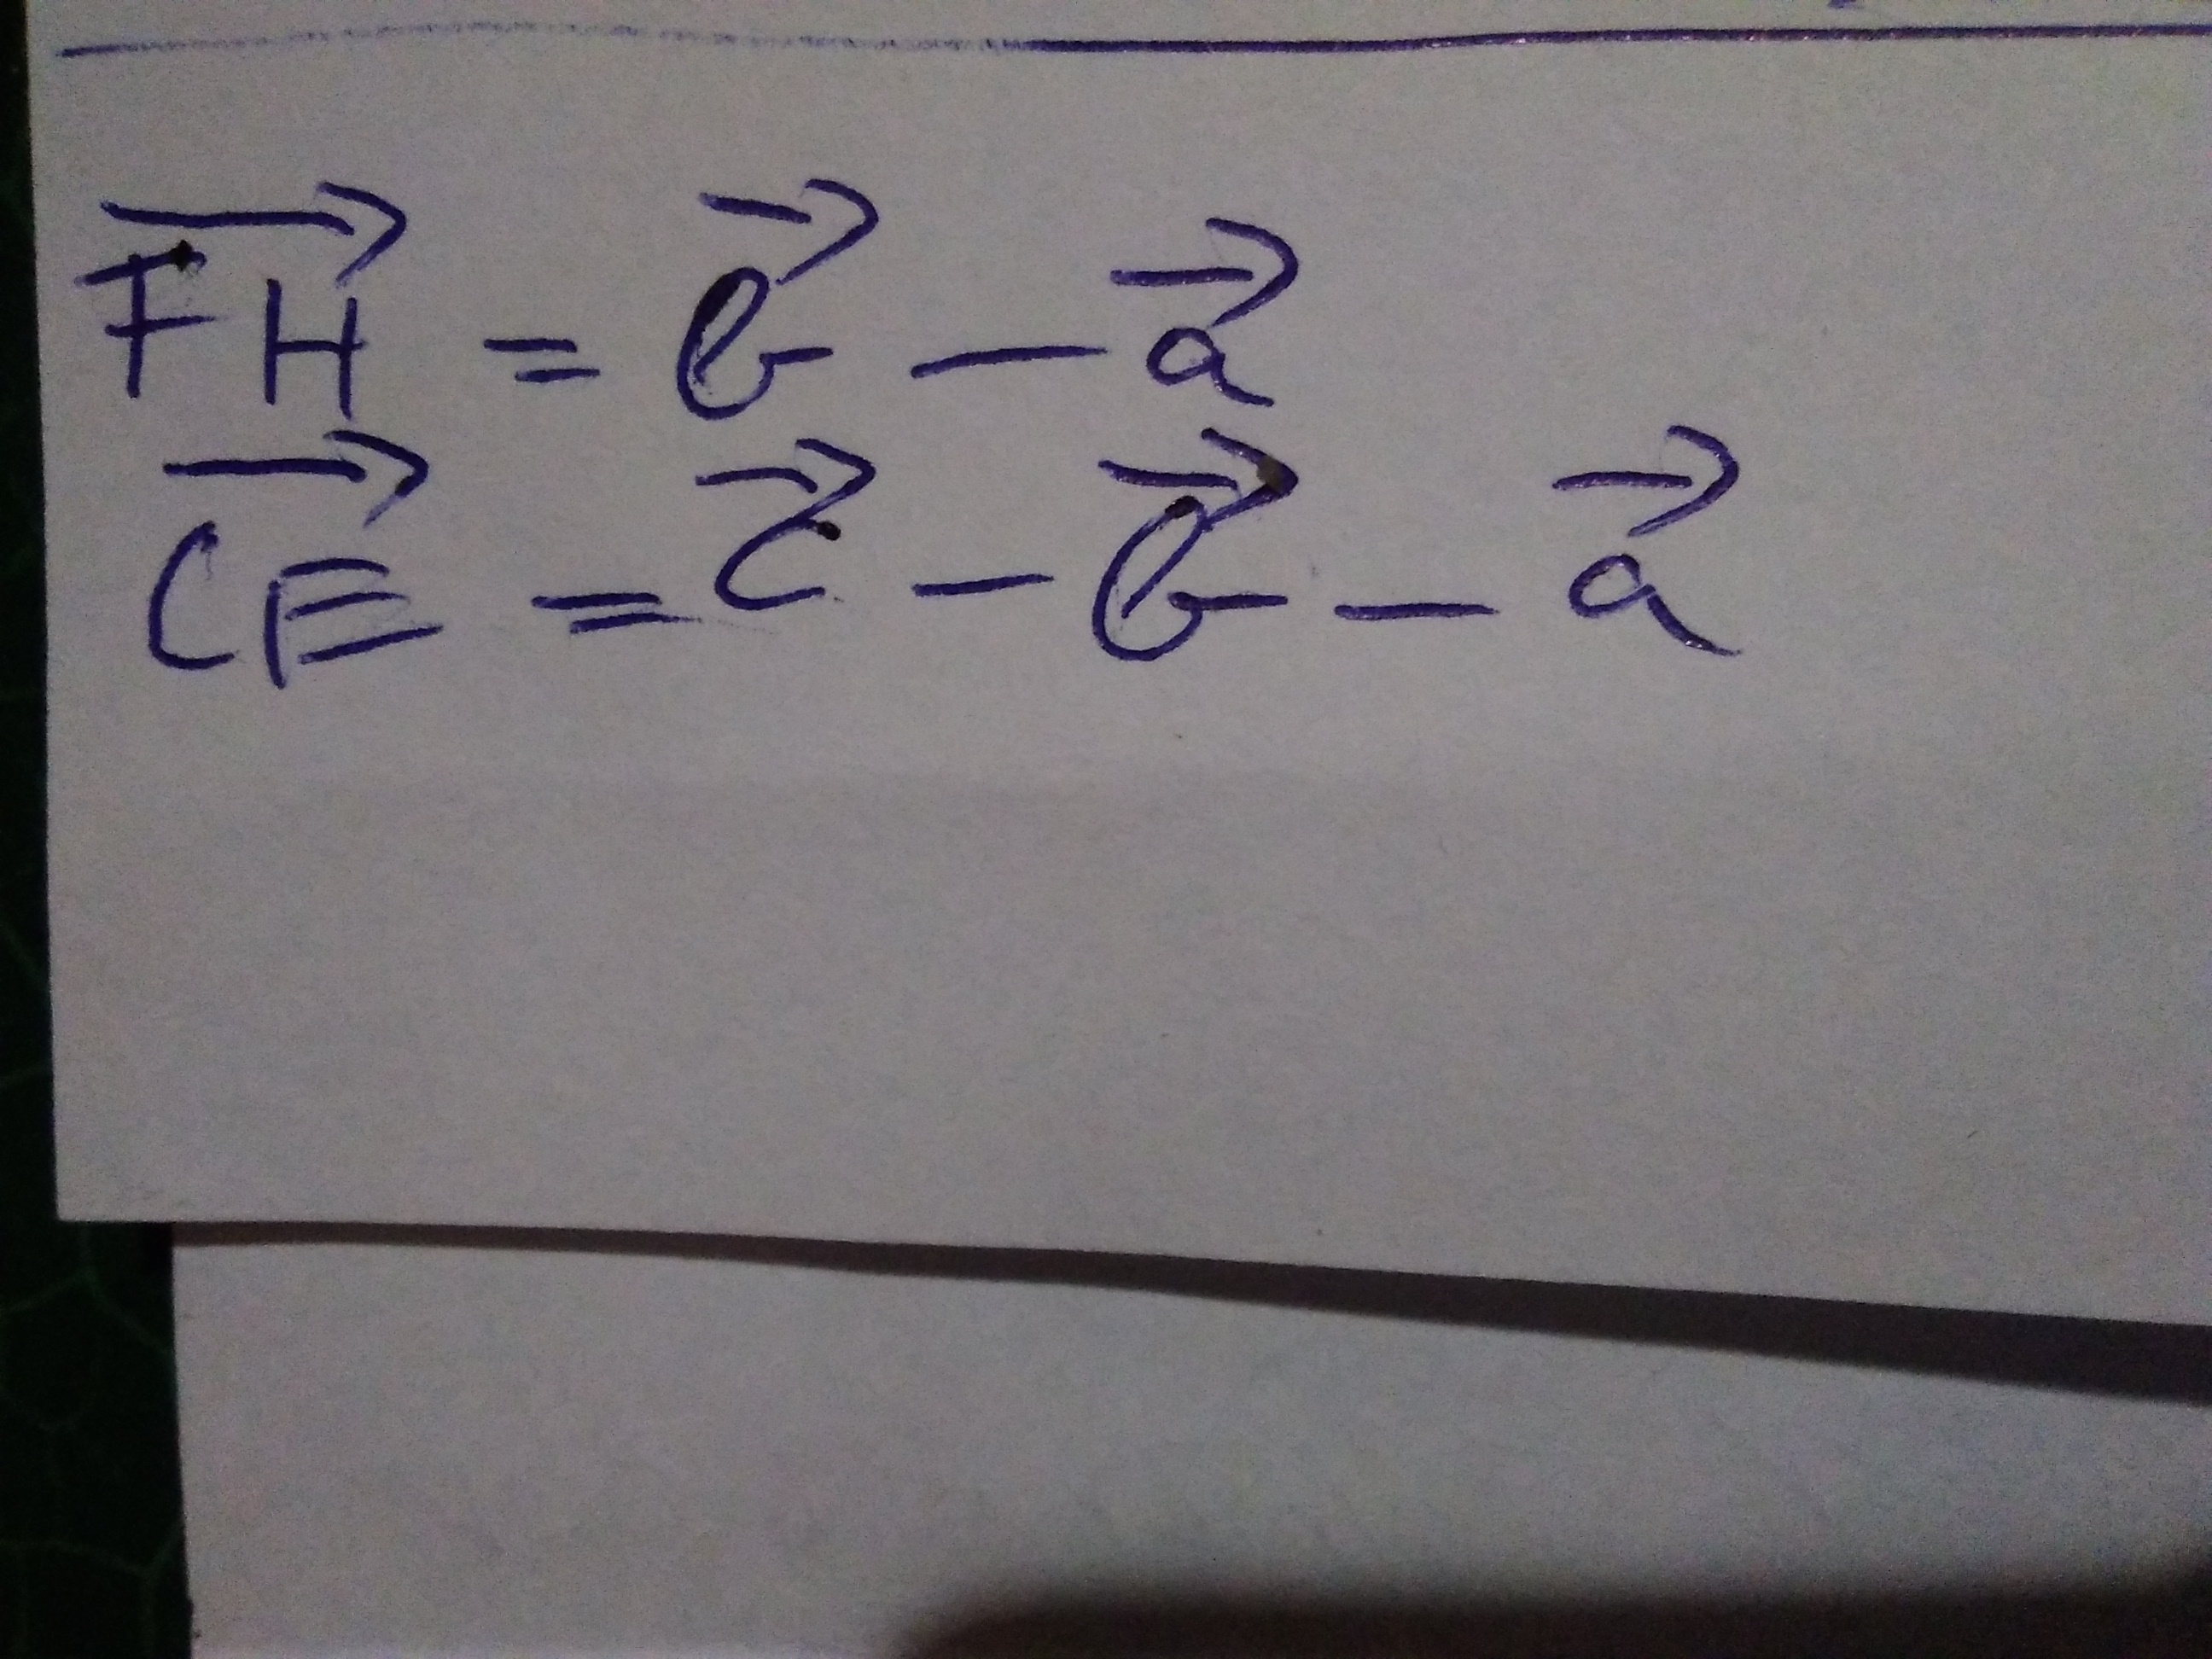 FH⃗ = b⃗ - a⃗
CE⃗ = c⃗ - b⃗ - a⃗